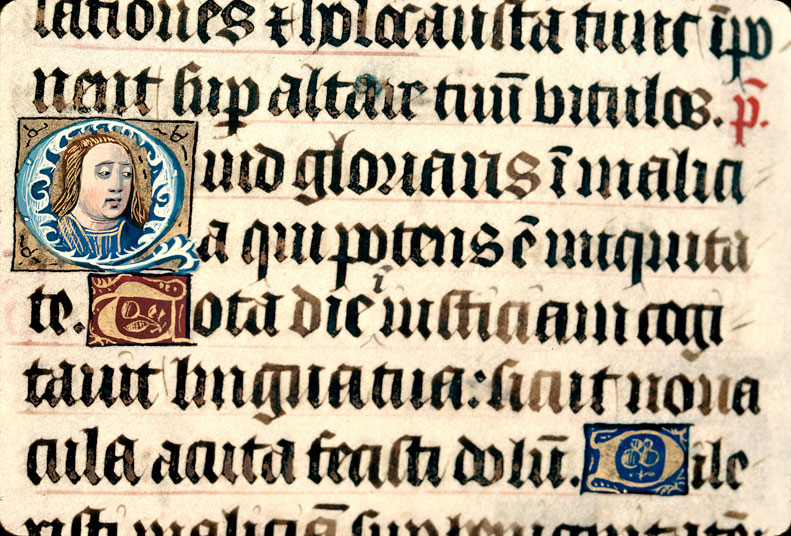 lationes ⁊ holocausta tunc īpo
nent sup̄ altare tuū vitulos. p̄.
Quid gloriaris ī malici
a qui potens ē iniquita
te. Tota die iniusticiam cogi
tavit lingua tua: sicut nova
cula acuta fecisti dolū. Dile
xisti maliciā sup̄ benignitatē: